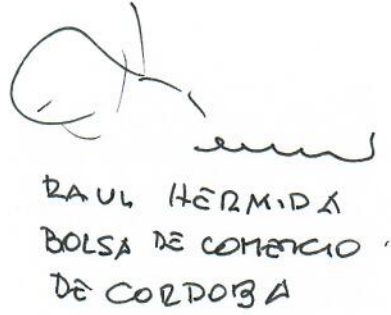 RAUL HERMIDA
BOLSA DE COMERCIO
DE CORDOBA